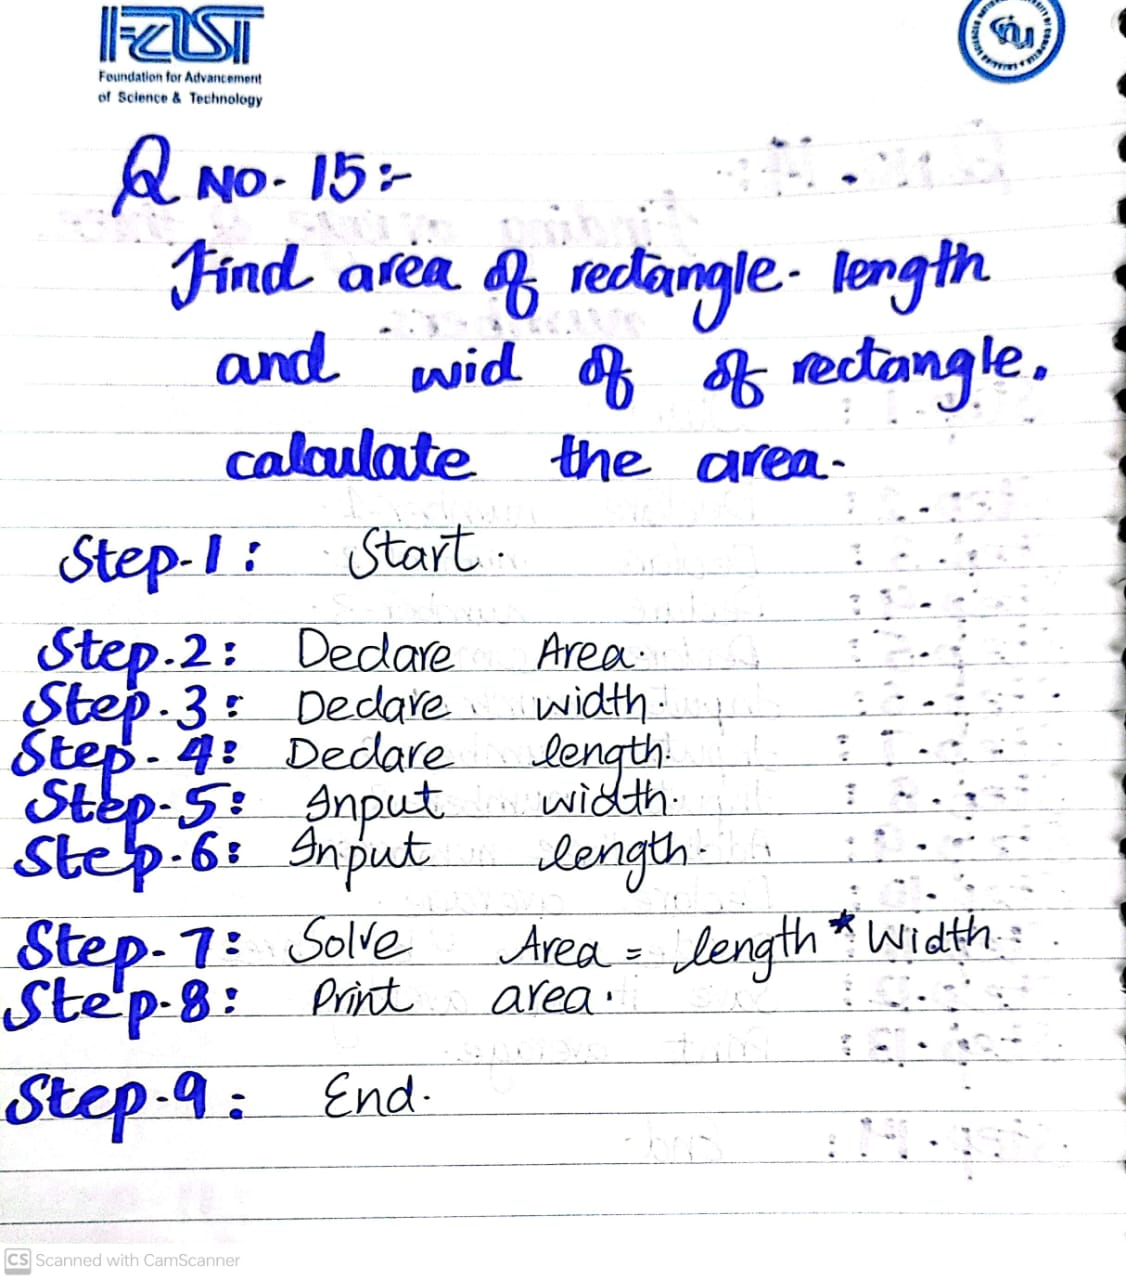 FAST
Foundation for Advancement
of Science & Technology
Q NO- 15:-
Find area of rectangle- length
and wid of of rectangle.
calculate the area-
Step-1: Start.
Step-2: Declare Area.
Step-3: Declare width.
Step-4: Declare length.
Step-5: Input width.
Step-6: Input length.
Step-7: Solve Area = length * Width
Step-8: Print area.
Step-9: End.
CS Scanned with CamScanner